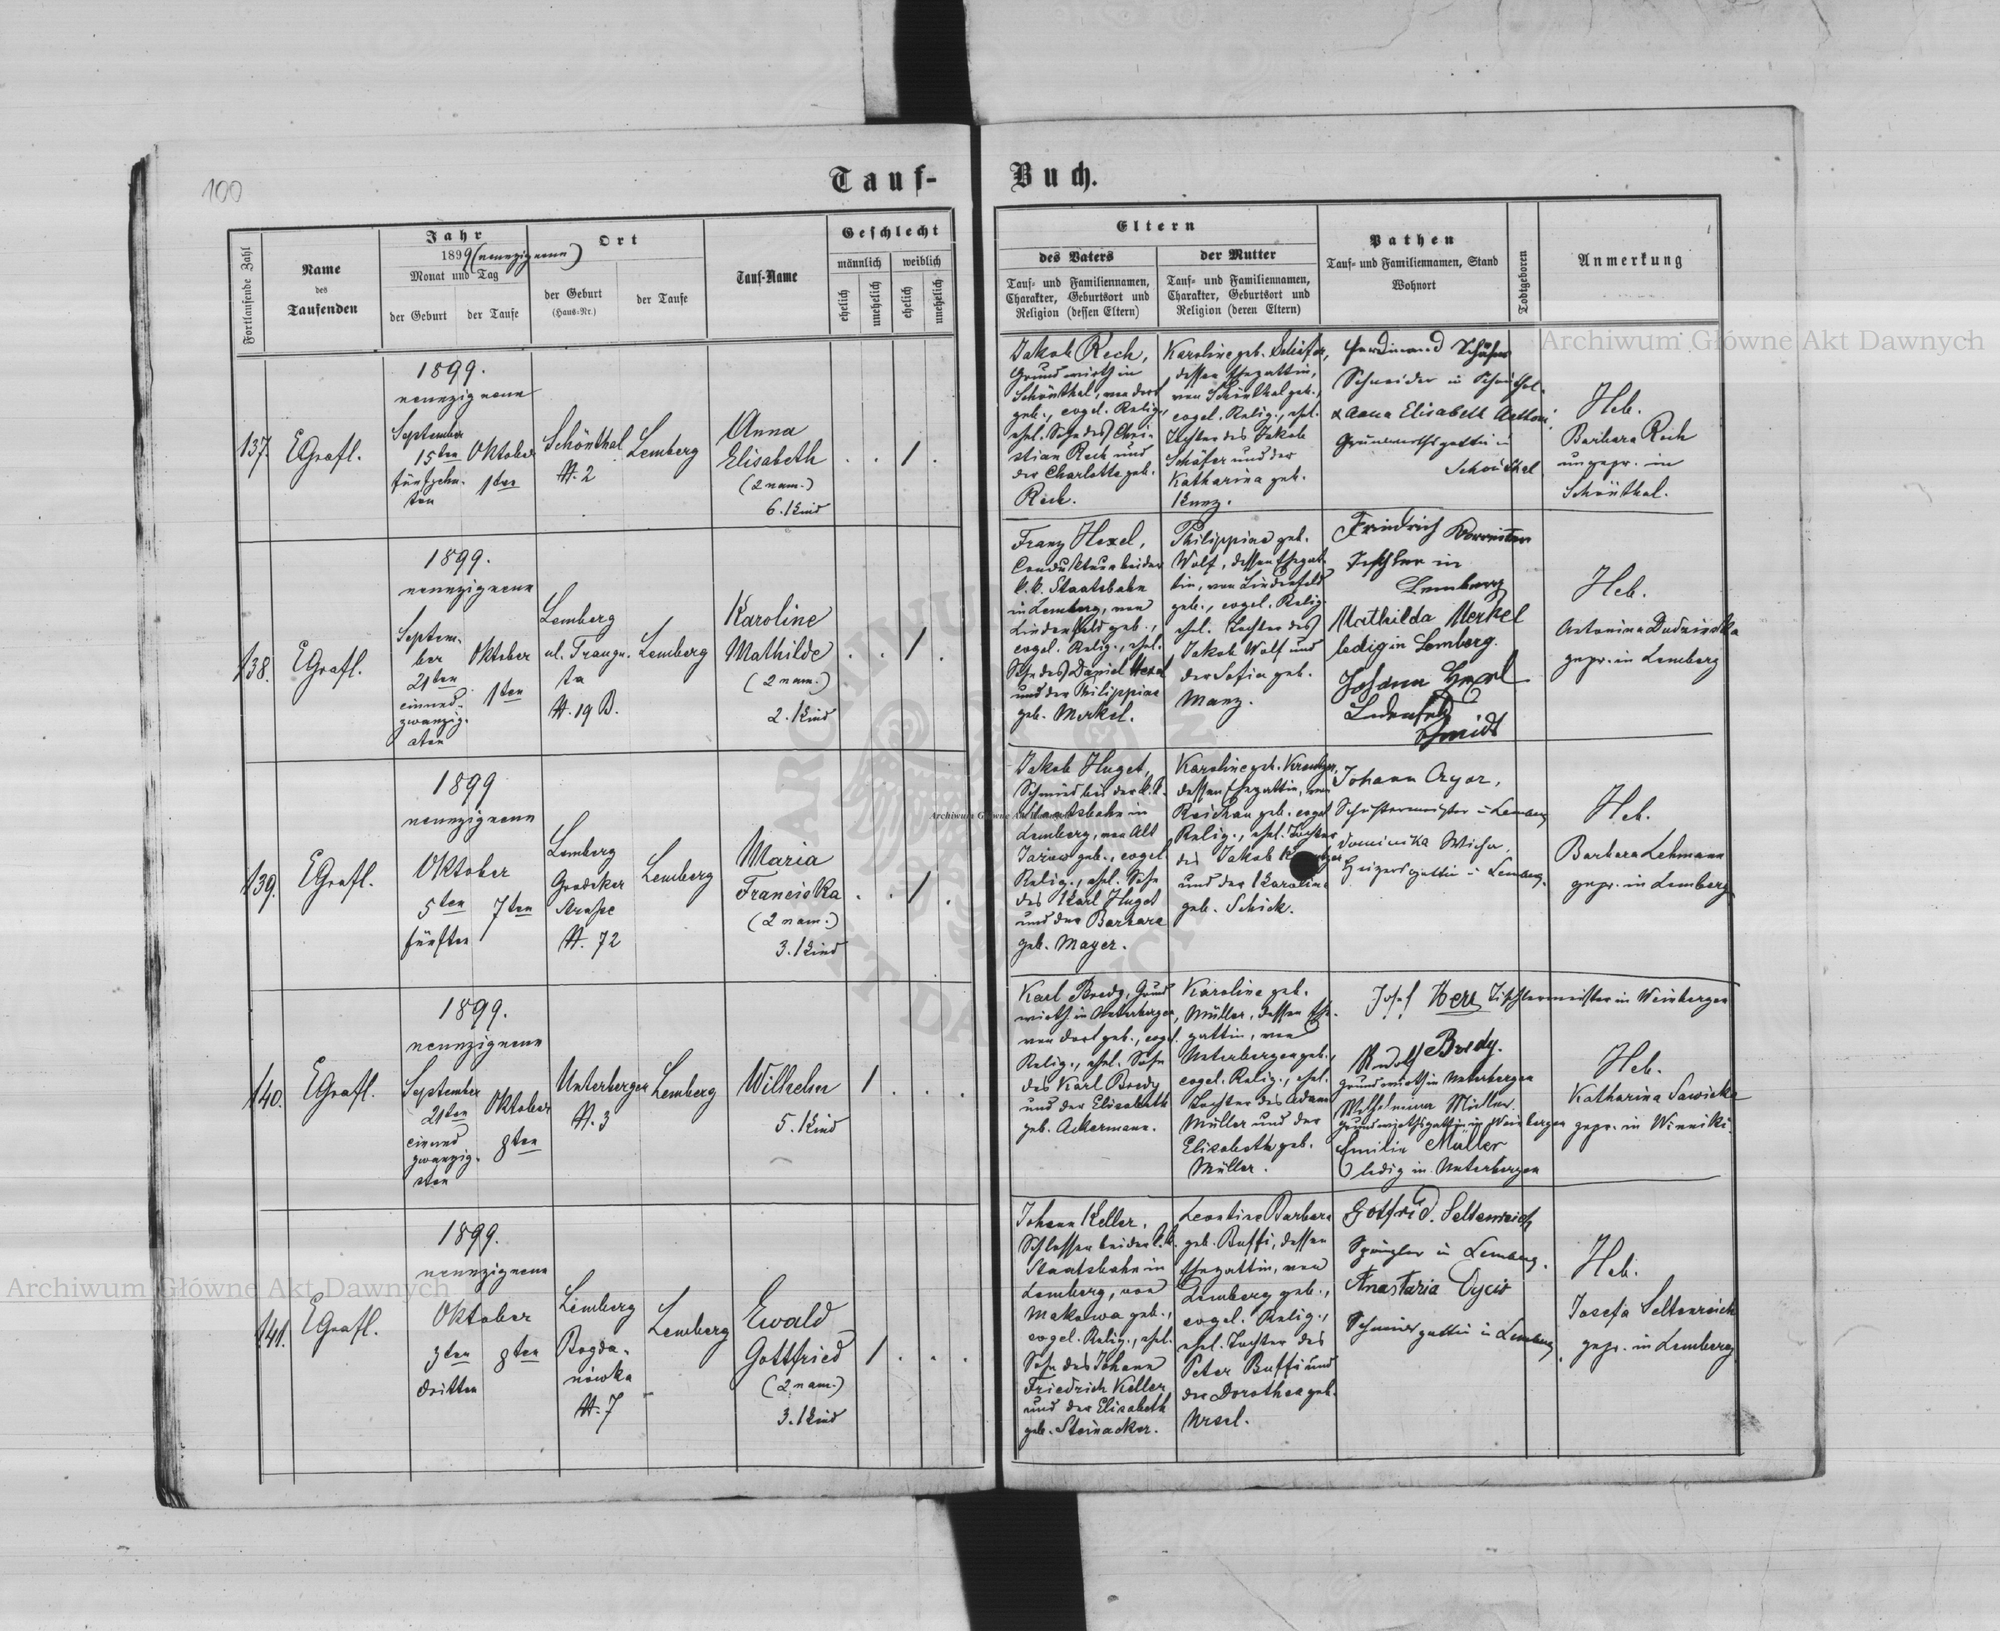 100
Tauf-
Buch.
Fortlaufende Zahl
Name
des
Taufenden
Jahr
1899 (neunzigneun)
Monat und Tag
der Geburt
der Taufe
Ort
der Geburt
(Haus-Nr.)
der Taufe
Tauf-Name
Geschlecht
männlich
weiblich
ehelich
unehelich
ehelich
unehelich
Eltern
des Vaters
Tauf- und Familiennamen,
Charakter, Geburtsort und
Religion (dessen Eltern)
der Mutter
Tauf- und Familiennamen,
Charakter, Geburtsort und
Religion (deren Eltern)
Pathen
Tauf- und Familiennamen, Stand
Wohnort
Todtgeboren
Anmerkung
137.
EGrafl.
1899.
neunzigneun
September
15ten
fünfzehn-
ten
Oktober
1ten
Schönthal
N. 2
Lemberg
Anna
Elisabeth
(2 nam.)
6. Kind
. . 1 .
Jakob Rech,
Grundwirth in
Schönthal, von dort
geb., evgel. Relig.,
ehel. Sohn des Chri-
stian Rech und
der Charlotte geb.
Rech.
Karoline geb. Schäfer,
dessen Ehegattin,
von Schönthal geb.,
evgel. Relig., ehel.
Tochter des Jakob
Schäfer und der
Katharina geb.
Kunz.
Ferdinand Schäfer
Schneider in Schönthal.
& Anna Elisabeth
Grundwirthsgattin in
Schönthal
Heb.
Barbara Rech
ungepr. in
Schönthal.
138.
EGrafl.
1899.
neunzigneun
Septem-
ber
21ten
einund-
zwanzig-
sten
Oktober
1ten
Lemberg
ul. Traugu-
ta
N. 19 B.
Lemberg
Karoline
Mathilde
(2 nam.)
2. Kind
. . 1 .
Franz Hexel,
Condukteur bei der
k.k. Staatsbahn
in Lemberg, von
Lindenfeld geb.,
evgel. Relig., ehel.
Sohn des Daniel Hexel
und der Philippine
geb. Merkel.
Philippine geb.
Wolf, dessen Ehegat-
tin, von Lindenfeld
geb., evgel. Relig.
ehel. Tochter des
Jakob Wolf und
der Sofia geb.
Manz.
Friedrich
Tischler in
Lemberg
Mathilda Merkel
ledig in Lemberg.
Johann Hexel
Schmidt
Heb.
Antonina Dudzińska
gepr. in Lemberg
139.
EGrafl.
1899
neunzigneun
Oktober
5ten
fünften
7ten
Lemberg
Grodeker
Straße
N. 72
Lemberg
Maria
Franciska
(2 nam.)
3. Kind
. . 1 .
Jakob Huget,
Schmied bei der k.k.
Staatsbahn in
Lemberg, von Alt
Jazow geb., evgel.
Relig., ehel. Sohn
des Karl Huget
und der Barbara
geb. Mayer.
Karoline geb. Kreutzer,
dessen Ehegattin, von
Reichau geb. evgel
Relig., ehel. Tochter
des Jakob
und der Karoline
geb. Schick.
Johann
Schustermeister in Lemberg
Dominika
Heizersgattin in Lemberg.
Heb.
Barbara Lehmann
gepr. in Lemberg
140.
EGrafl.
1899.
neunzigneun
September
21ten
einund
zwanzig-
sten
Oktober
8ten
Unterbergen
N. 3
Lemberg
Wilhelm
5. Kind
1 . . .
Karl Bredy, Grund
wirth in Unterbergen,
von dort geb., evgel.
Relig., ehel. Sohn
des Karl Bredy
und der Elisabeth
geb. Ackermann.
Karoline geb.
Müller, dessen Ehe-
gattin, von
Unterbergen geb.,
evgel. Relig., ehel.
Tochter des Adam
Müller und der
Elisabeth geb.
Müller.
Josef Herz Tischlermeister in Weinbergen
Rudolf Bredy.
Grundwirth in Unterbergen
Wilhelmina Müller.
Grundwirthsgattin in Weinbergen
Emilie Müller
ledig in Unterbergen
Heb.
Katharina Sawicka
gepr. in Winniki.
141.
EGrafl.
1899.
neunzigneun
Oktober
3ten
dritten
8ten
Lemberg
Bogda-
nówka
N. 7
Lemberg
Ewald
Gottfried
(2 nam.)
3. Kind
1 . . .
Johann Keller,
Schlosser bei der k.k.
Staatsbahn in
Lemberg, von
Makowa geb.,
evgel. Relig., ehel.
Sohn des Johann
Friedrich Keller
und der Elisabeth
geb. Steinacker.
Leontine Barbara
geb. Buffi, dessen
Ehegattin, von
Lemberg geb.,
evgel. Relig.,
ehel. Tochter des
Peter Buffi und
der Dorothea geb.
Ursel.
Gottfried Seltenreich
Spängler in Lemberg.
Anastasia
Schmiedsgattin in Lemberg
Heb.
Josefa Seltenreich
gepr. in Lemberg
Archiwum Główne Akt Dawnych
Archiwum Główne Akt Dawnych